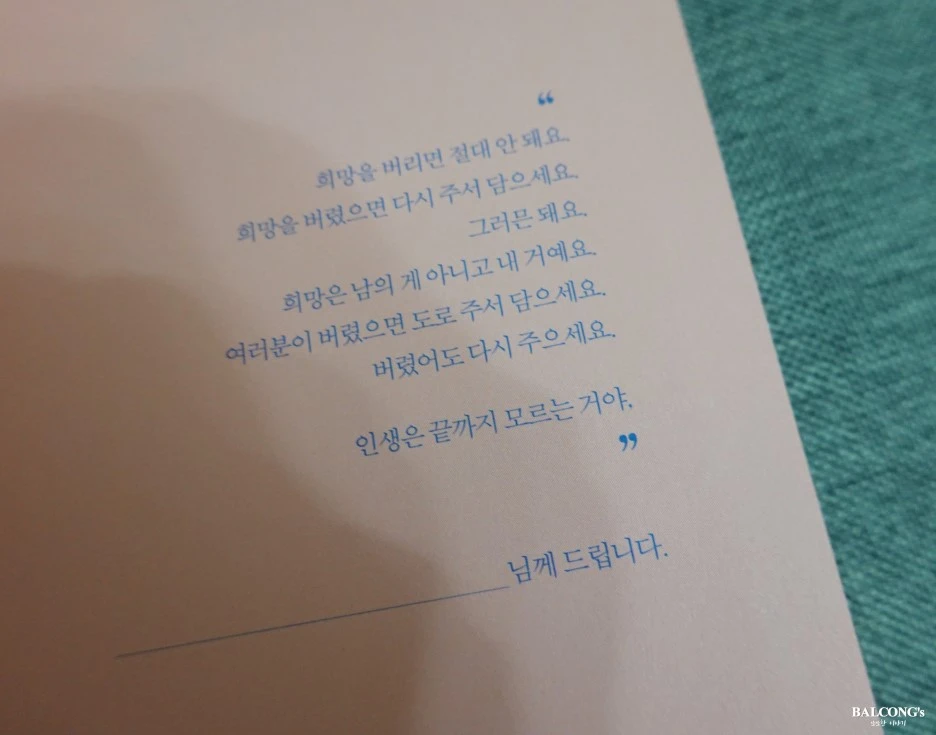 “
희망을 버리면 절대 안 돼요.
희망을 버렸으면 다시 주서 담으세요.
그러믄 돼요.
희망은 남의 게 아니고 내 거예요.
여러분이 버렸으면 도로 주서 담으세요.
버렸어도 다시 주으세요.
인생은 끝까지 모르는 거야.
”
님께 드립니다.
BALCONG's